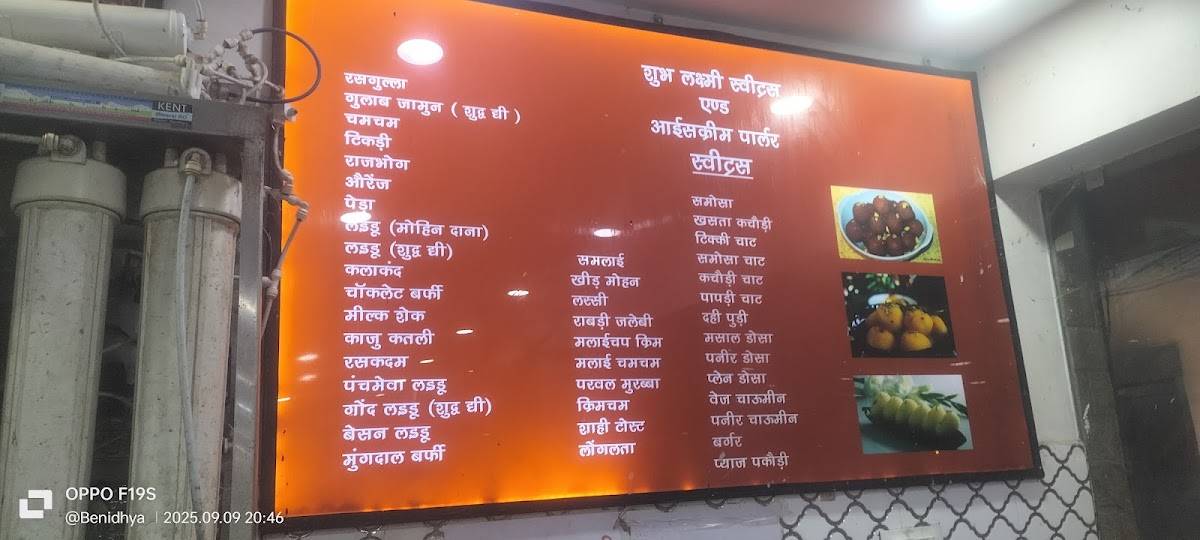 शुभ लक्ष्मी स्वीट्स
एण्ड
आईसक्रीम पार्लर
स्वीट्स
रसगुल्ला
गुलाब जामुन ( शुद्व घी )
चमचम
टिकड़ी
राजभोग
औरेंज
पेड़ा
लड्डू (मोहिन दाना)
लड्डू (शुद्व घी)
कलाकंद
चॉकलेट बर्फी
मील्क शेक
काजु कतली
रसकदम
पंचमेवा लड्डू
गोंद लड्डू (शुद्व घी)
बेसन लड्डू
मुंगदाल बर्फी
समलाई
खीड़ मोहन
लस्सी
राबड़ी जलेबी
मलाईचप क्रिम
मलाई चमचम
परवल मुरब्बा
क्रिमचम
शाही टोस्ट
लौंगलता
समोसा
खसता कचौड़ी
टिक्की चाट
समोसा चाट
कचौड़ी चाट
पापड़ी चाट
दही पुड़ी
मसाल डोसा
पनीर डोसा
प्लेन डोसा
वेज चाऊमीन
पनीर चाऊमीन
बर्गर
प्याज पकौड़ी
KENT
OPPO F19S
@Benidhya | 2025.09.09 20:46